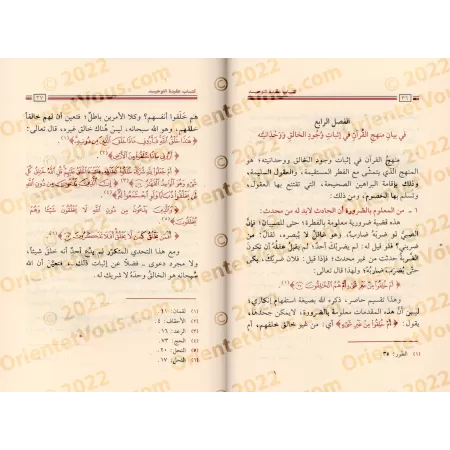 ٣٦
كتاب عقيدة التوحيد
الفصل الرابع
في بيان منهج القرآن في إثبات وُجود الخالق وَوَحْدانيّته
منهجُ القرآن في إثبات وجود الخالق ووحدانيته؛ هو
المنهج الذي يتمشى مع الفطر المستقيمة، والعقول السليمة،
وذلك بإقامة البراهين الصحيحة، التي تقتنع بها العقول،
وتسلِّم بها الخصوم، ومن ذلك:
١ ـ من المعلوم بالضرورة أن الحادث لابد له من محدث:
هذه قضية ضرورية معلومة بالفطرة؛ حتى
الصبي لو ضربه ضارب، وهو غافل لا يُبصره، لقال: من
ضربني؟ فلو قيل له: لم يضربك أحدٌ؛ لم يقبل عقله أن تكون
الضربة حدثت من غير محدث؛ فإذا قيل: فلان ضربك، بكى
حتى يُضرب ضاربه؛ ولهذا قال تعالى:
﴿ أَمْ خُلِقُوا مِنْ غَيْرِ شَيْءٍ أَمْ هُمُ الْخَالِقُونَ ﴾ (١)
وهذا تقسيم حاصر، ذكره الله بصيغة استفهام إنكاري؛
ليبين أنَّ هذه المقدمات معلومة بالضرورة، لا يمكن جحدها،
يقول: ﴿ أَمْ خُلِقُوا مِنْ غَيْرِ شَيْءٍ ﴾ أي: من غير خالق خلقهم، أم
(١) الطور: ٣٥
كتاب عقيدة التوحيد
٣٧
هم خَلَقوا أنفسهم؟ وكلا الأمرين باطلٌ؛ فتعين أن لهم خالقاً
خلقهم، وهو الله سبحانه، ليس هُناك خالق غيره، قال تعالى:
﴿ هَٰذَا خَلْقُ اللَّهِ فَأَرُونِي مَاذَا خَلَقَ الَّذِينَ مِنْ دُونِهِ ﴾ (١)
﴿ أَرُونِي مَاذَا خَلَقُوا مِنَ الْأَرْضِ ﴾ (٢)
﴿ أَمْ جَعَلُوا لِلَّهِ شُرَكَاءَ خَلَقُوا كَخَلْقِهِ فَتَشَابَهَ الْخَلْقُ عَلَيْهِمْ قُلِ اللَّهُ خَالِقُ كُلِّ
﴿ وَالَّذِينَ يَدْعُونَ مِنْ دُونِ اللَّهِ لَا يَخْلُقُونَ شَيْئًا وَهُمْ
﴿ أَفَمَنْ يَخْلُقُ كَمَنْ لَا يَخْلُقُ أَفَلَا تَذَكَّرُونَ ﴾ (٦)
ومع هذا التحدي المتكرر لم يدَّعِ أحدٌ أنه خلق شيئاً،
ولا مجرد دعوى ـ فضلاً عن إثبات ذلك ـ، فتعيّن أن الله
سبحانه هو الخالق وحده لا شريك له.
(١) لقمان: ١١
(٢) الأحقاف: ٤
(٣) الرعد: ١٦
(٤) الحج: ٧٣
(٥) النحل: ٢٠
(٦) النحل: ١٧
© 2022
OrientetVous.com